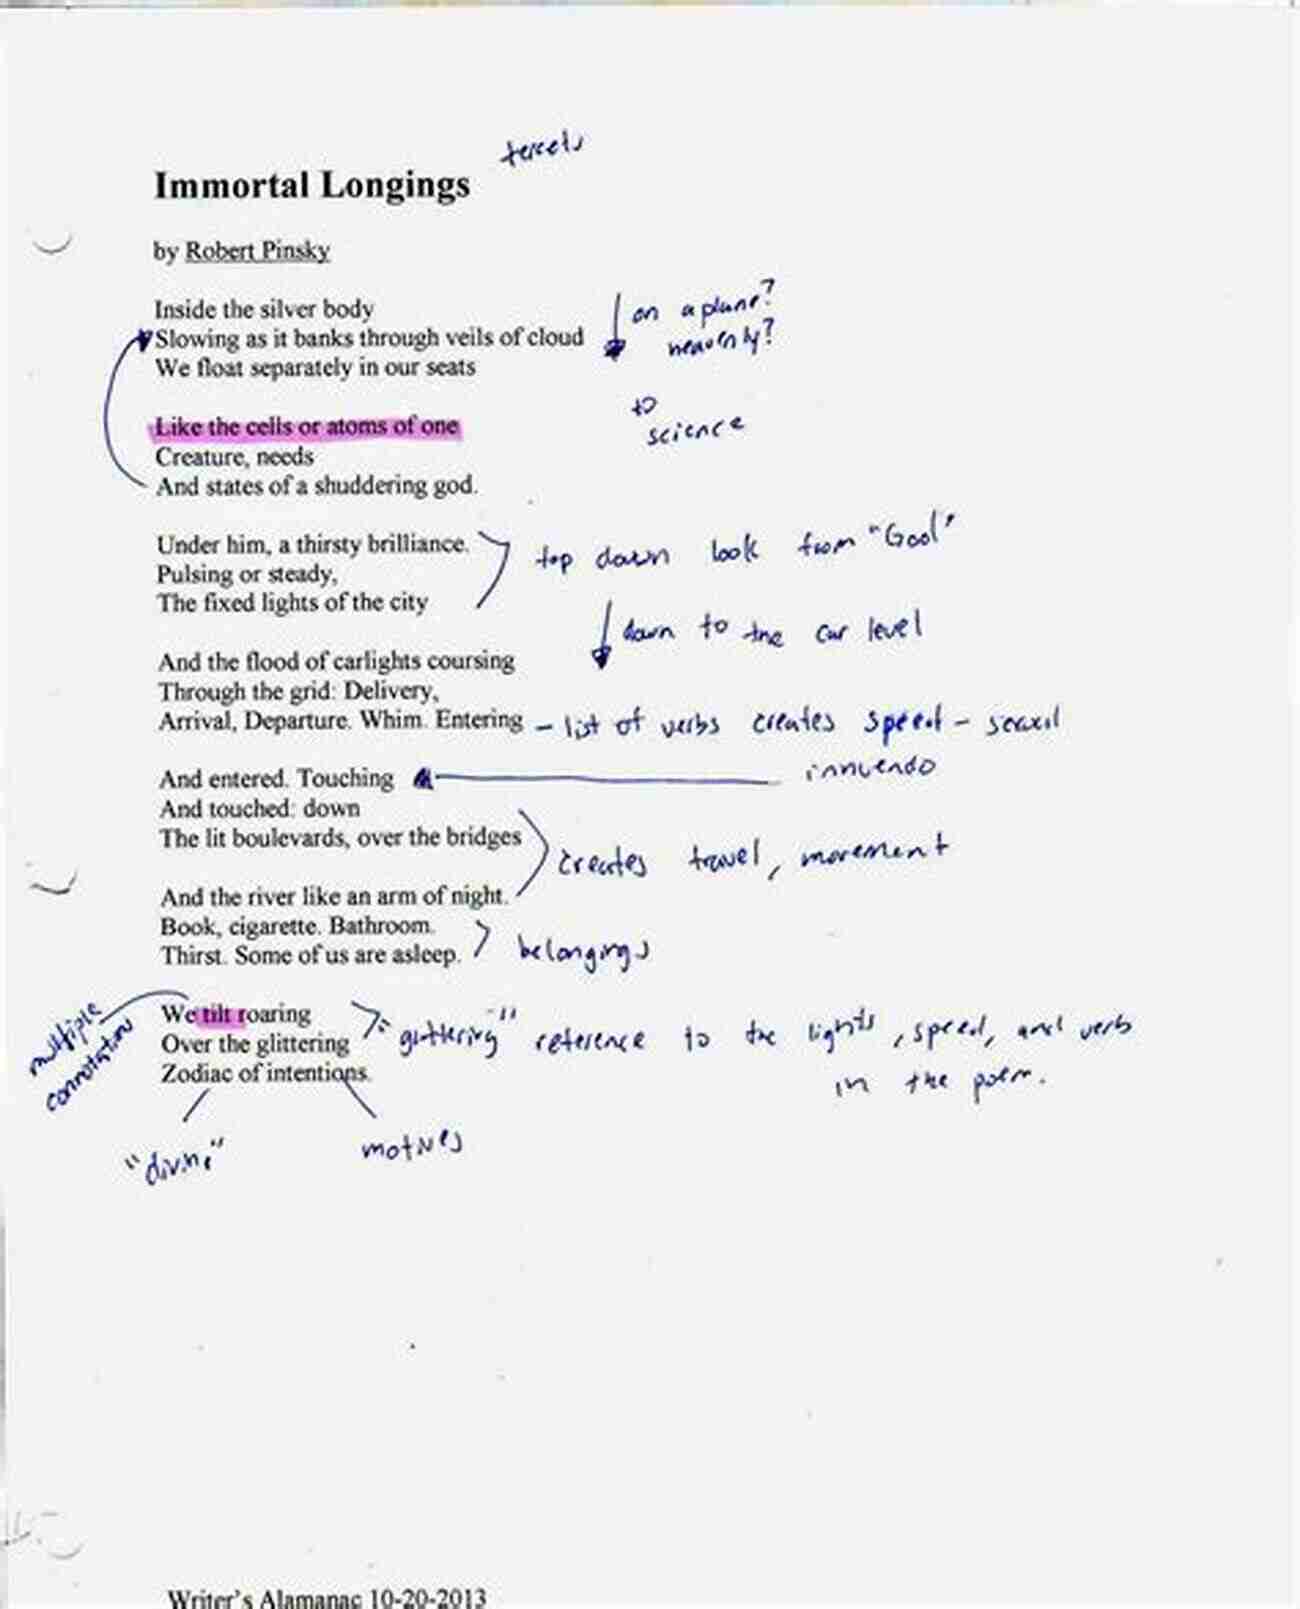 tercets
Immortal Longings
by Robert Pinsky
Inside the silver body
Slowing as it banks through veils of cloud
We float separately in our seats
on a plane?
heavenly?
Like the cells or atoms of one
Creature, needs
And states of a shuddering god.
to
science
Under him, a thirsty brilliance.
Pulsing or steady,
The fixed lights of the city
top down look from "God"
down to the car level
And the flood of carlights coursing
Through the grid: Delivery,
Arrival, Departure. Whim. Entering
- list of verbs creates speed - sexual
innuendo
And entered. Touching
And touched: down
The lit boulevards, over the bridges
creates travel, movement
And the river like an arm of night.
Book, cigarette. Bathroom.
Thirst. Some of us are asleep.
belongings
We tilt roaring
Over the glittering
Zodiac of intentions.
multiple
connotation
"glittering" reference to the lights, speed, and verb
in the poem.
"divine"
motives
Writer's Alamanac 10-20-2013